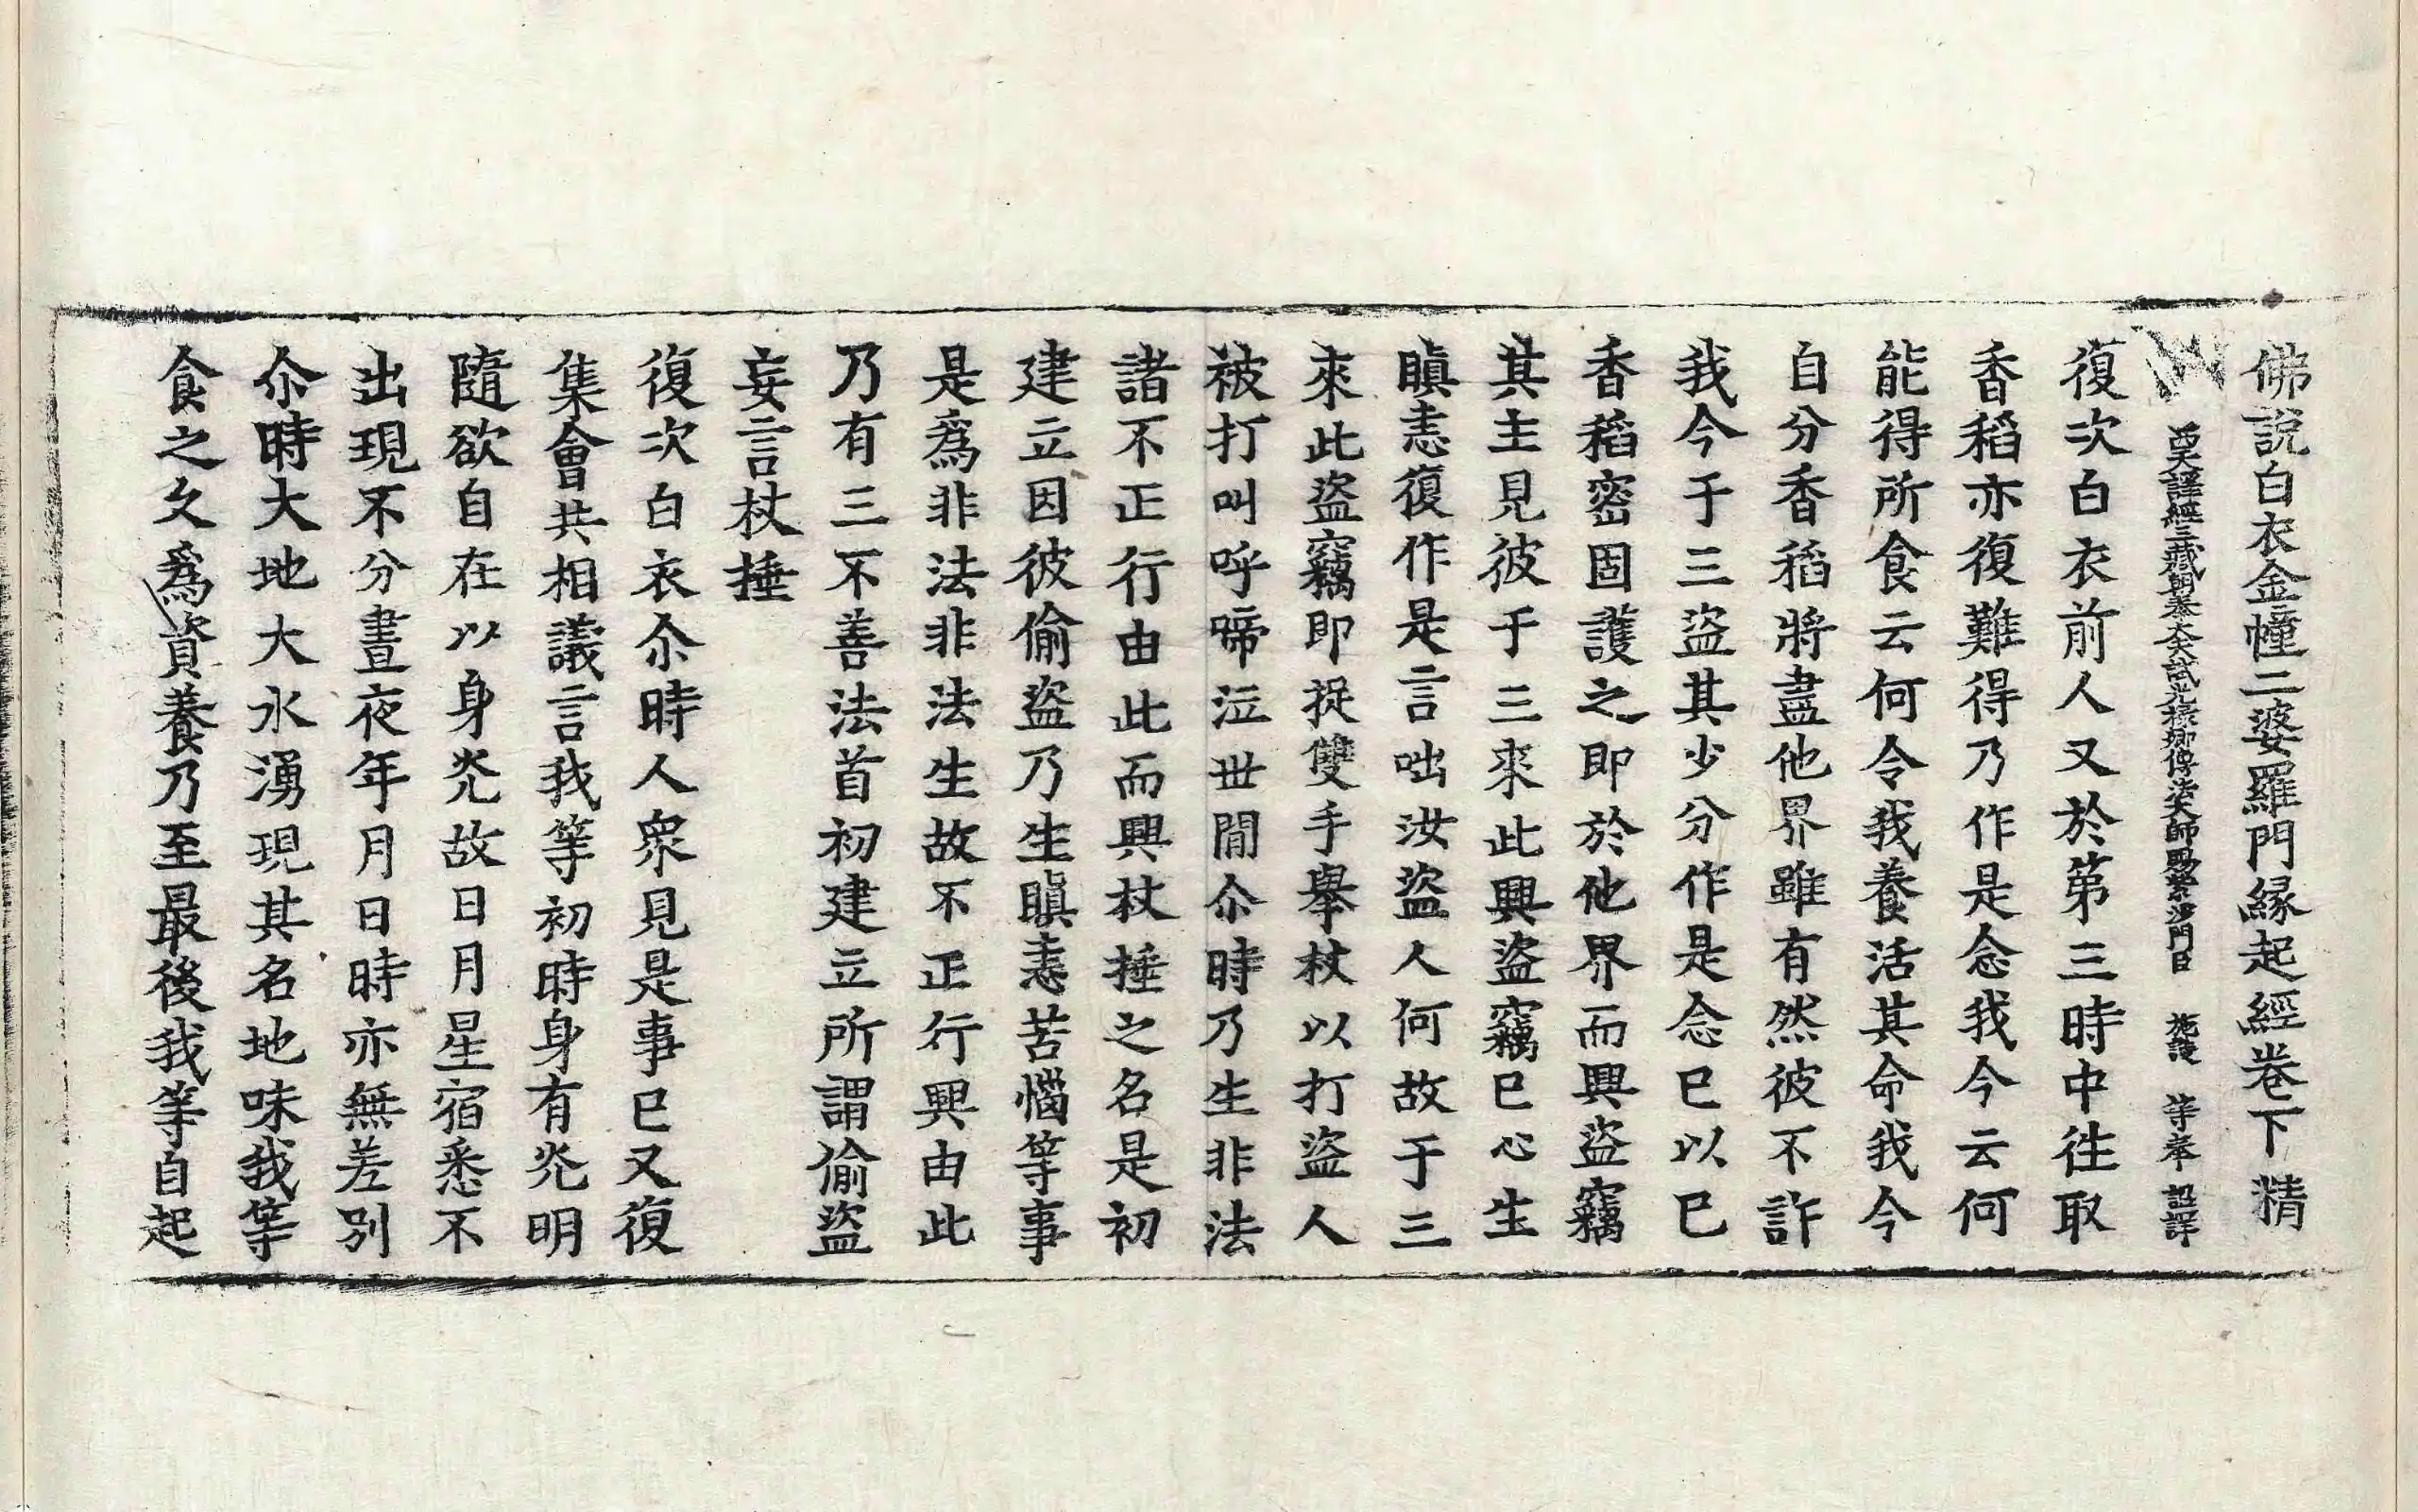 佛説白衣金幢二婆羅門縁起經卷下 精
西天譯經三藏朝奉大夫試光祿卿傳法大師賜紫沙門臣 施護 等奉 詔譯
復次白衣前人又於第三時中往取
香稻亦復難得乃作是念我今云何
能得所食云何令我養活其命我今
自分香稻將盡他界雖有然彼不許
我今于三盜其少分作是念已以已
香稻密固護之即於他界而興盜竊
其主見彼于三來此興盜竊已心生
瞋恚復作是言咄汝盜人何故于三
來此盜竊即捉雙手舉杖以打盜人
被打叫呼啼泣世間尒時乃生非法
諸不正行由此而興杖捶之名是初
建立因彼偷盜乃生瞋恚苦惱等事
是爲非法非法生故不正行興由此
乃有三不善法首初建立所謂偷盜
妄言杖捶
復次白衣尒時人衆見是事已又復
集會共相議言我等初時身有光明
隨欲自在以身光故日月星宿悉不
出現不分晝夜年月日時亦無差別
尒時大地大水湧現其名地味我等
食之久爲資養乃至最後我等自起